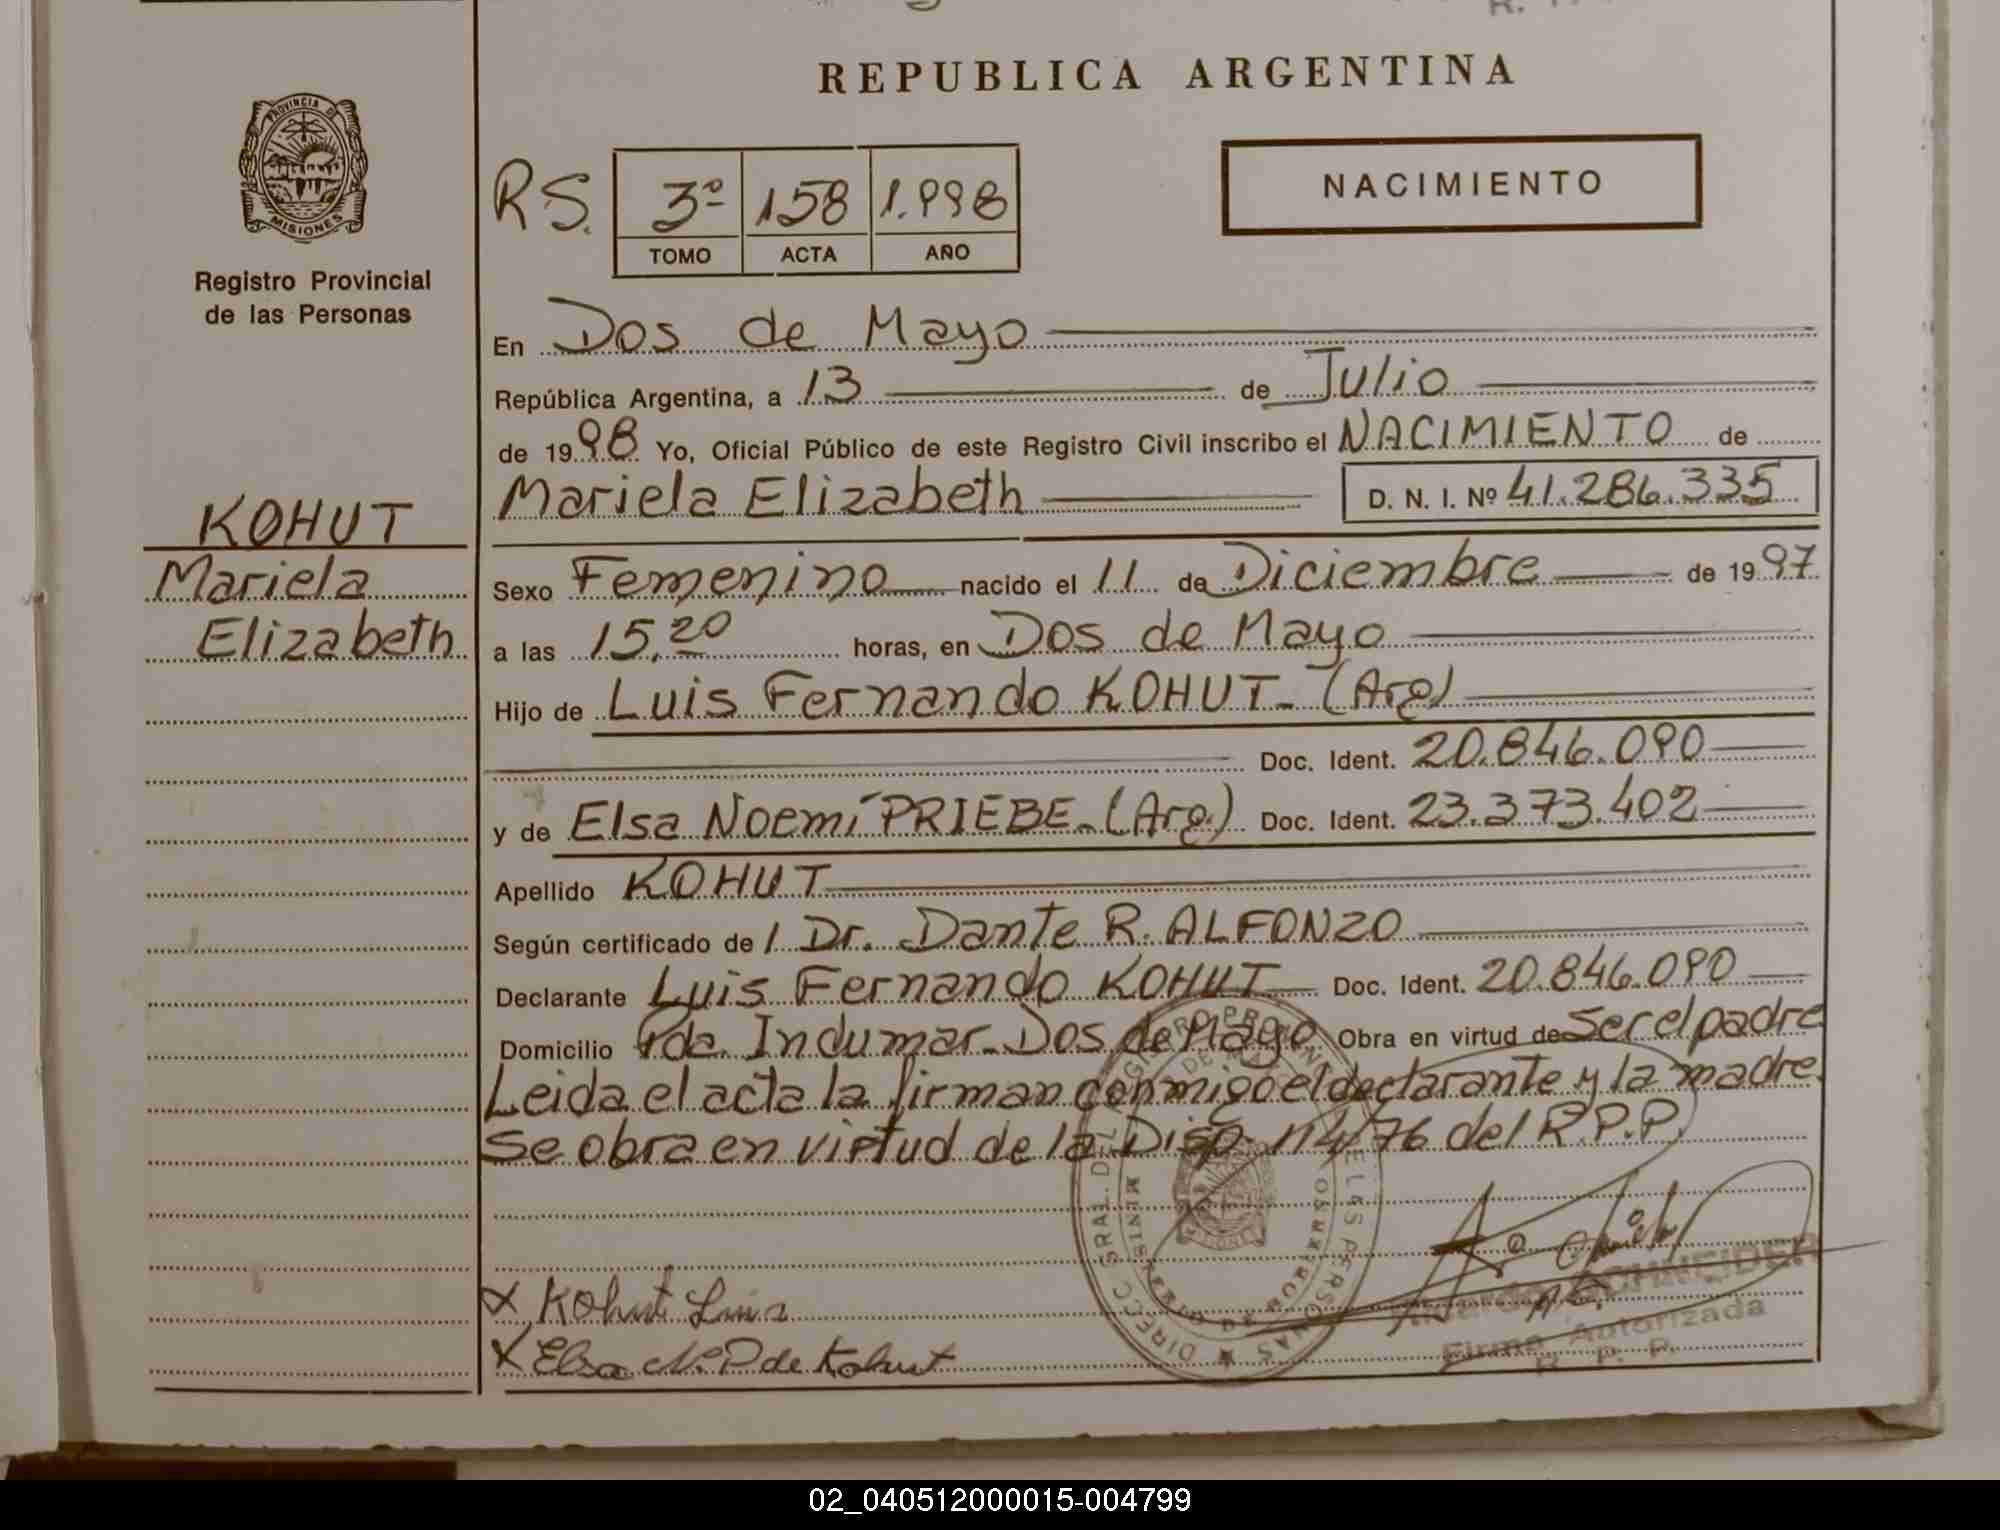 REPUBLICA ARGENTINA
PROVINCIA DE
MISIONES
Registro Provincial
de las Personas
RS. 3º 158 1.998
TOMO ACTA AÑO
NACIMIENTO
En Dos de Mayo
República Argentina, a 13 de Julio
de 1998 Yo, Oficial Público de este Registro Civil inscribo el NACIMIENTO de
Mariela Elizabeth D. N. I. Nº 41.286.335
KOHUT
Mariela
Elizabeth
Sexo Femenino nacido el 11 de Diciembre de 1997
a las 15,20 horas, en Dos de Mayo
Hijo de Luis Fernando KOHUT - (Arg)
Doc. Ident. 20.846.090
y de Elsa Noemí PRIEBE - (Arg.) Doc. Ident. 23.373.402
Apellido KOHUT
Según certificado de / Dr. Dante R. ALFONZO
Declarante Luis Fernando KOHUT Doc. Ident. 20.846.090
Domicilio Pda. Indumar - Dos de Mayo Obra en virtud de Ser el padre
Leida el acta la firman conmigo el declarante y la madre.
Se obra en virtud de la Disp. 114/76 del R.P.P.
x Kohut Luis
x Elsa N. P de Kohut
SCHNEIDER
Firma Autorizada
R. P. P.
02_040512000015-004799